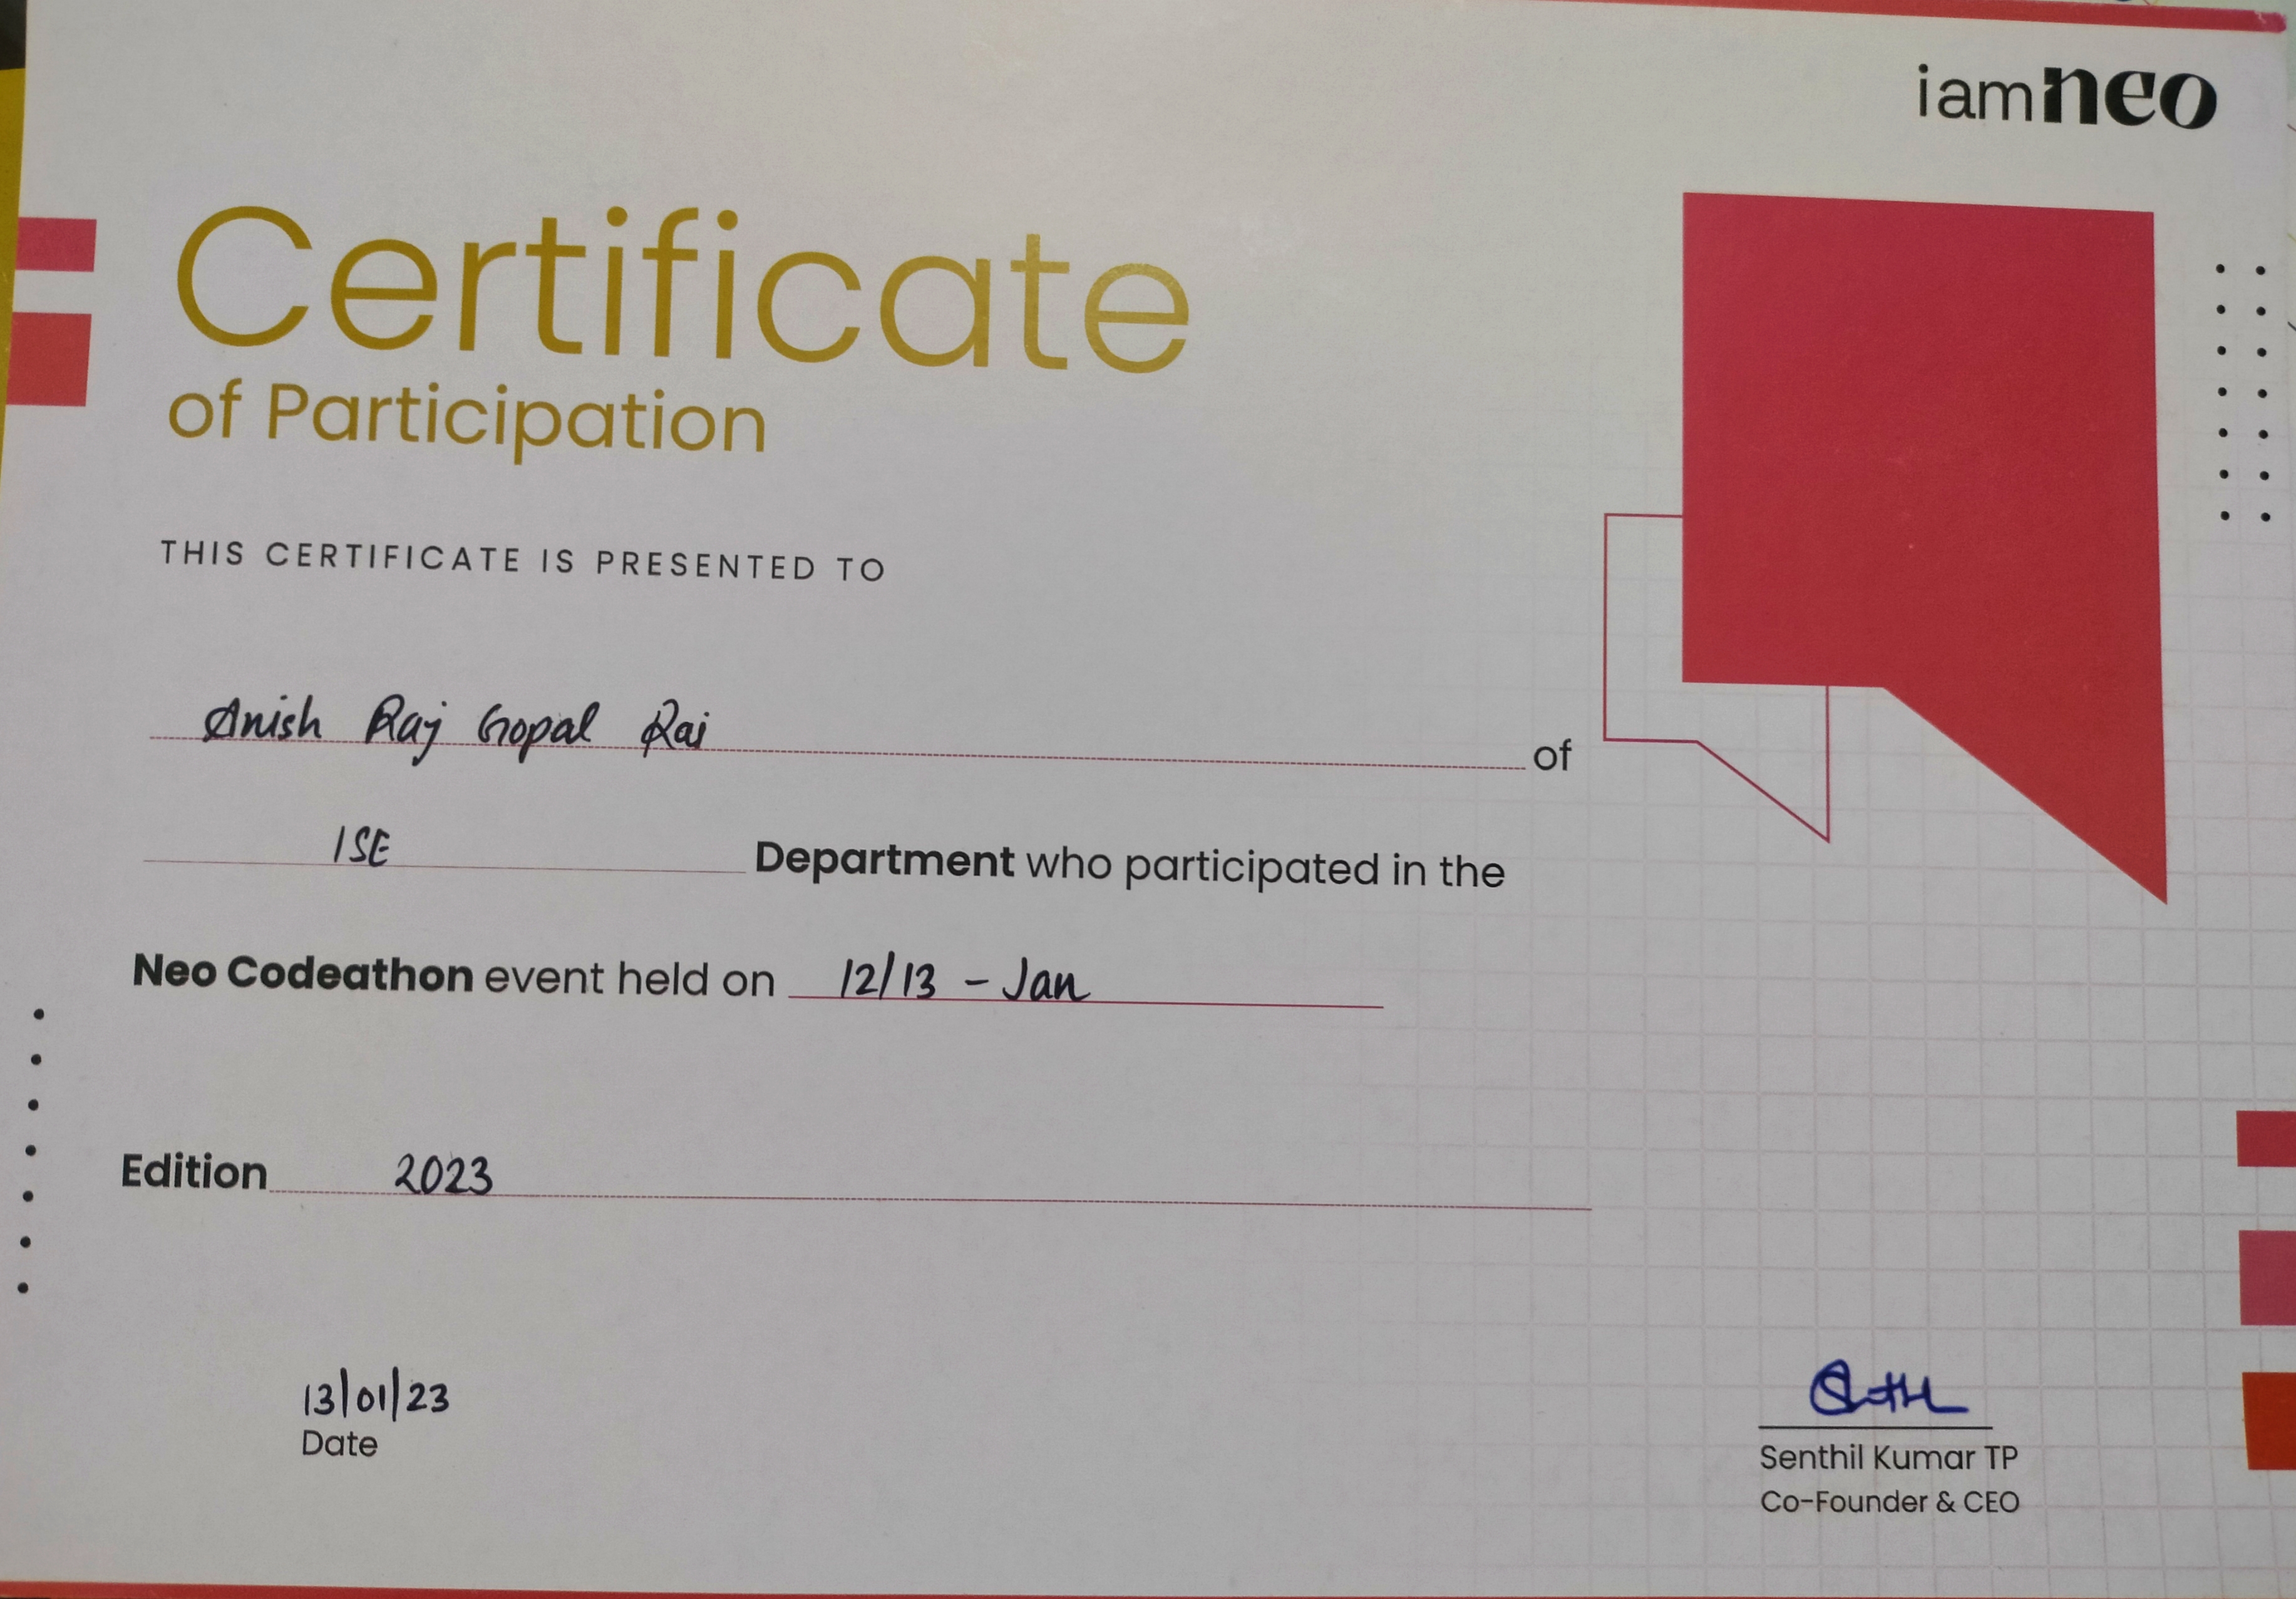 iamneo
Certificate
of Participation
THIS CERTIFICATE IS PRESENTED TO
Anish Raj Gopal Rai of
ISE Department who participated in the
Neo Codeathon event held on 12/13 - Jan
Edition 2023
13/01/23
Date
Senthil Kumar TP
Co-Founder & CEO